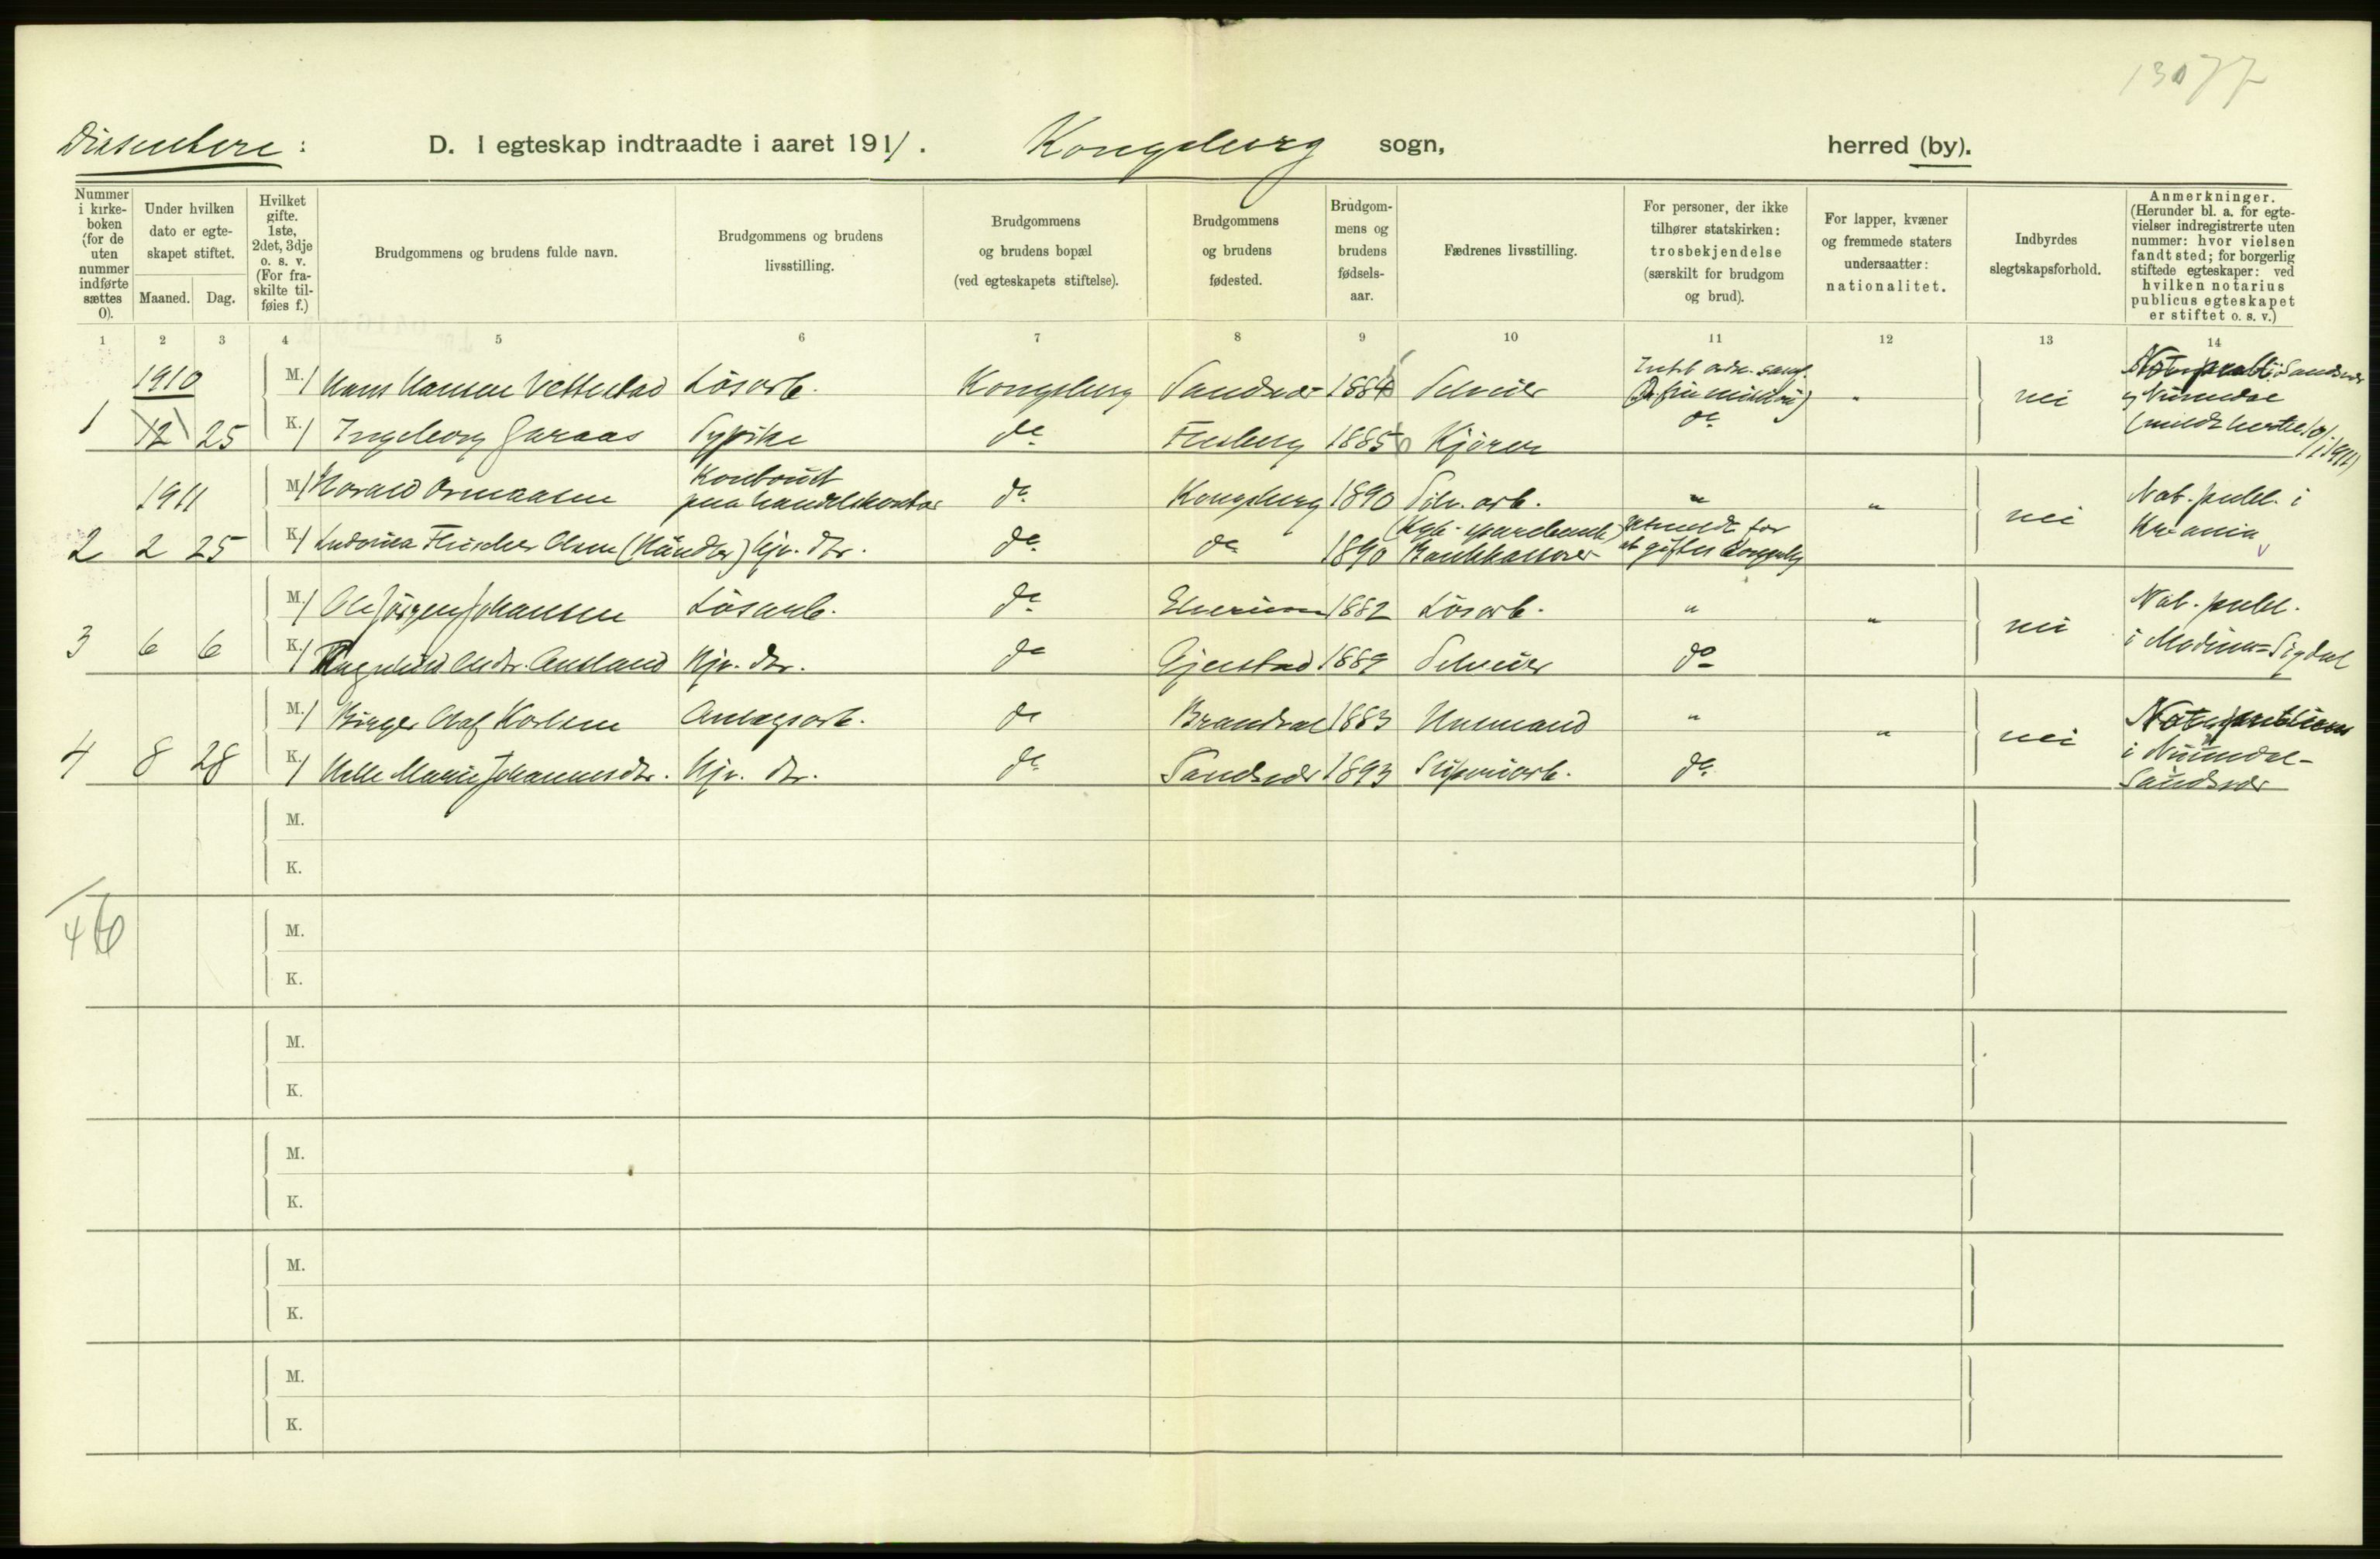 1377
Dissentere : D. I egteskap indtraadte i aaret 1911. Kongsberg sogn, herred (by).
Nummer i kirke-boken (for de uten nummer indførte sættes 0).
Under hvilken dato er egte-skapet stiftet.
Maaned. Dag.
Hvilket gifte. 1ste, 2det, 3dje o. s. v. (For fra-skilte til-føies f.)
Brudgommens og brudens fulde navn.
Brudgommens og brudens livsstilling.
Brudgommens og brudens bopæl (ved egteskapets stiftelse).
Brudgommens og brudens fødested.
Brudgom-mens og brudens fødsels-aar.
Fædrenes livsstilling.
For personer, der ikke tilhører statskirken: trosbekjendelse (særskilt for brudgom og brud).
For lapper, kvæner og fremmede staters undersaatter: nationalitet.
Indbyrdes slegtskapsforhold.
Anmerkninger. (Herunder bl. a. for egte-vielser indregistrerte uten nummer: hvor vielsen fandt sted; for borgerlig stiftede egteskaper: ved hvilken notarius publicus egteskapet er stiftet o. s. v.)
1 2 3 4 5 6 7 8 9 10 11 12 13 14
1910 M. 1 Hans Hansen Vettestad Løsarb. Kongsberg Sandsvær 1884 Selveier " nei
1 12 25 K. 1 Ingeborg Garaas Sypike do Flesberg 1885 Kjører do
1911 M. 1 Harald Ormaasen Kontorist paa handelskontor do Kongsberg 1890 Sølv. arb. " " nei Not. publ. i
2 2 25 K. 1 Ludovica Fleischer Olsen do do 1890 Bankkasserer Kr.ania
M. 1 Ole Jørgen Johansen Løsarb. do Elverum 1882 Løsarb. " " nei Not. publ.
3 6 6 K. 1 Ragnhild Andr. Ausland Hjv. dtr. do Gjerstad 1889 Selveier do i Modum-Sigdal
M. 1 Birger Olaf Karlsen Anlægsarb. do Brandval 1883 Husmand " " nei Not. publicus
4 8 28 K. 1 Helle Marie Johannesdtr. Hjv. dtr. do Sandsvær 1893 Sliperiarb. do i Numedal-
Sandsvær
M.
K.
M.
K.
M.
K.
M.
K.
M.
K.
M.
K.